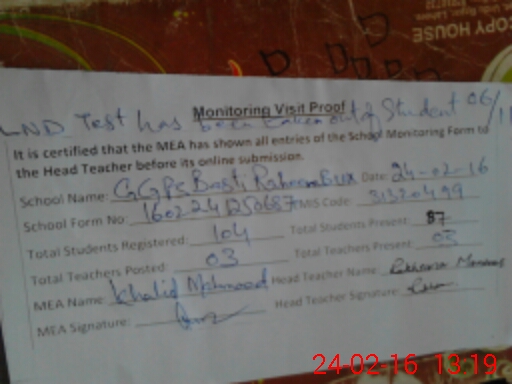 COPY HOUSE
Monitoring Visit Proof
LND Test has been taken out of Student 06/11
It is certified that the MEA has shown all entries of the School Monitoring Form to
the Head Teacher before its online submission.
School Name: GGPS Basti Raheem Bux Date: 24-02-16
School Form No: 160224 MIS Code: 31320499
Total Students Registered: 104 Total Students Present: 87
Total Teachers Posted: 03 Total Teachers Present: 03
MEA Name: Khalid Mahmood Head Teacher Name:
MEA Signature: Head Teacher Signature:
24-02-16 13:19